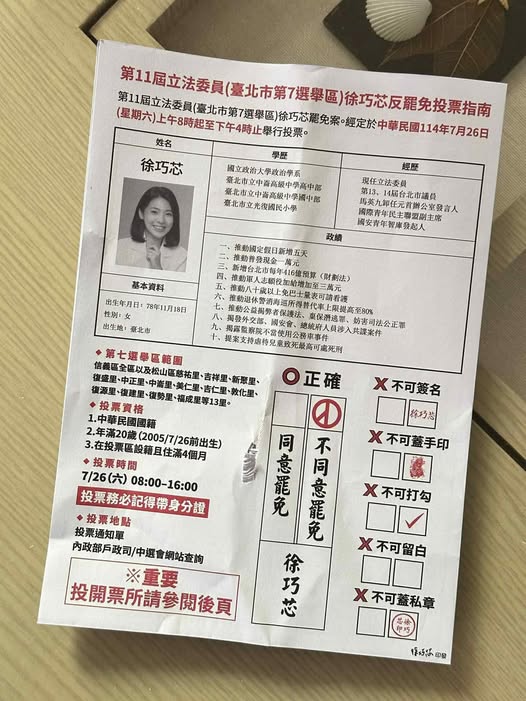 第11屆立法委員(臺北市第7選舉區)徐巧芯反罷免投票指南
第11屆立法委員(臺北市第7選舉區)徐巧芯罷免案。經定於中華民國114年7月26日
(星期六)上午8時起至下午4時止舉行投票。
姓名
徐巧芯
基本資料
出生年月日:78年11月18日
性別:女
出生地:臺北市
學歷
國立政治大學政治學系
臺北市立中崙高級中學高中部
臺北市立中崙高級中學國中部
臺北市立光復國民小學
經歷
現任立法委員
第13、14屆台北市議員
馬英九卸任元首辦公室發言人
國際青年民主聯盟副主席
國安青年智庫發起人
政績
一、推動國定假日新增五天
二、推動普發現金一萬元
三、新增台北市每年416億預算(財劃法)
四、推動軍人志願役加給增加至三萬元
五、推動八十歲以上免巴士量表可請看護
六、推動退休警消海巡所得替代率上限提高至80%
七、推動公益揭弊者保護法、棄保潛逃罪、妨害司法公正罪
八、揭發外交部、國安會、總統府人員涉入共諜案件
九、揭露監察院不當使用公務車事件
十、提案支持虐待兒童致死最高可處死刑
◆第七選舉區範圍
信義區全區以及松山區慈祐里、吉祥里、新聚里、
復盛里、中正里、中崙里、美仁里、吉仁里、敦化里、
復源里、復建里、復勢里、福成里等13里。
◆投票資格
1.中華民國國籍
2.年滿20歲(2005/7/26前出生)
3.在投票區設籍且住滿4個月
◆投票時間
7/26(六)08:00–16:00
投票務必記得帶身分證
◆投票地點
投票通知單
內政部戶政司/中選會網站查詢
※重要
投開票所請參閱後頁
O正確
不同意罷免
同意罷免
徐巧芯
X不可簽名
徐巧芯
X不可蓋手印
X不可打勾
X不可留白
X不可蓋私章
徐巧芯印
徐巧芯 印發